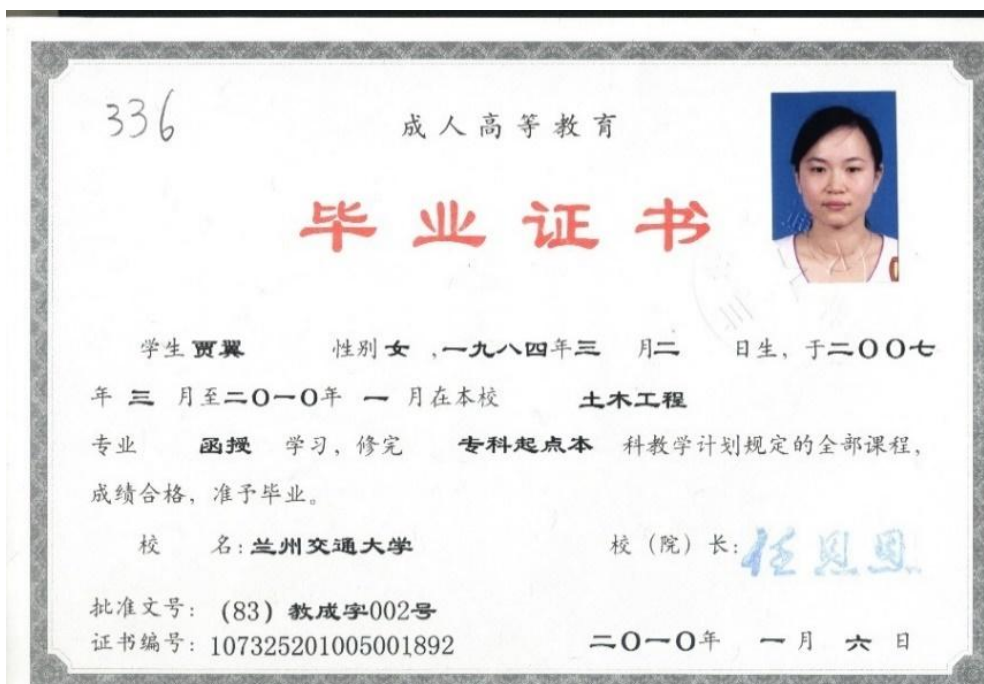 336
成人高等教育
毕业证书
学生 贾翼 性别 女 ,一九八四年三 月二 日生, 于二〇〇七
年 三 月至二〇一〇年 一 月在本校 土木工程
专业 函授 学习, 修完 专科起点本 科教学计划规定的全部课程,
成绩合格, 准予毕业。
校 名: 兰州交通大学 校 (院) 长: 任恩恩
批准文号: (83) 教成字002号
证书编号: 107325201005001892 二〇一〇年 一 月 六 日